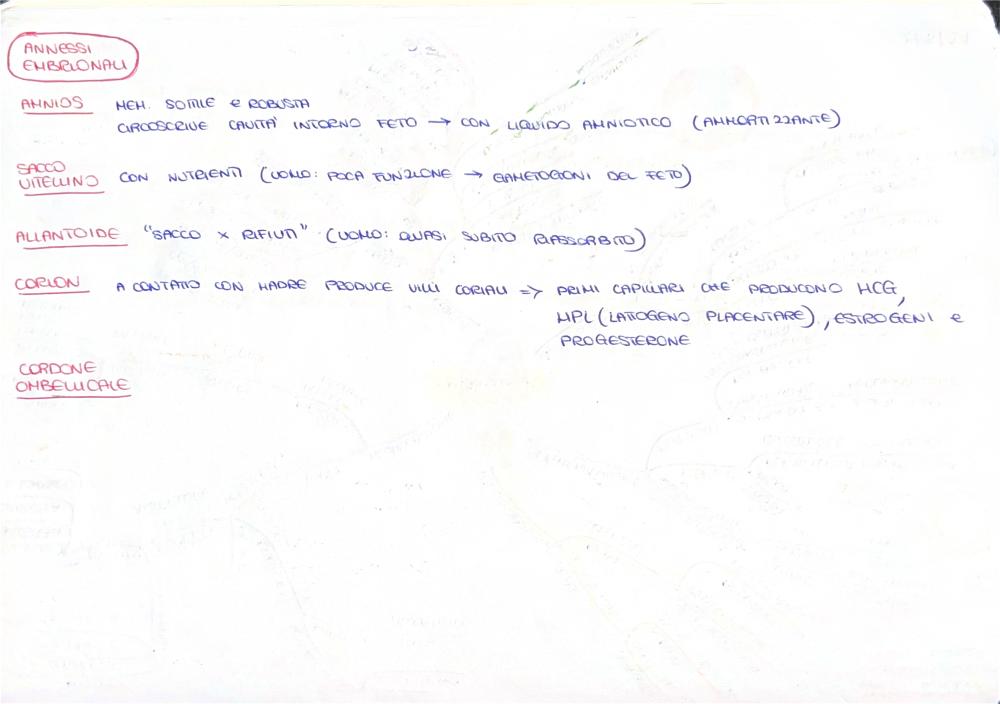 ANNESSI
EMBRIONALI
AMNIOS MEM. SOTTILE E ROBUSTA
CIRCOSCRIVE CAVITÀ INTORNO FETO → CON LIQUIDO AMNIOTICO (AMMORTIZZANTE)
SACCO
VITELLINO CON NUTRIENTI (UOMO: POCA FUNZIONE → GAMETOGONI DEL FETO)
ALLANTOIDE "SACCO X RIFIUTI" (UOMO: QUASI SUBITO RIASSORBITO)
CORION A CONTATTO CON MADRE PRODUCE VILLI CORIALI => PRIMI CAPILLARI CHE PRODUCONO HCG,
HPL (LATTOGENO PLACENTARE), ESTROGENI E
PROGESTERONE
CORDONE
OMBELLICALE